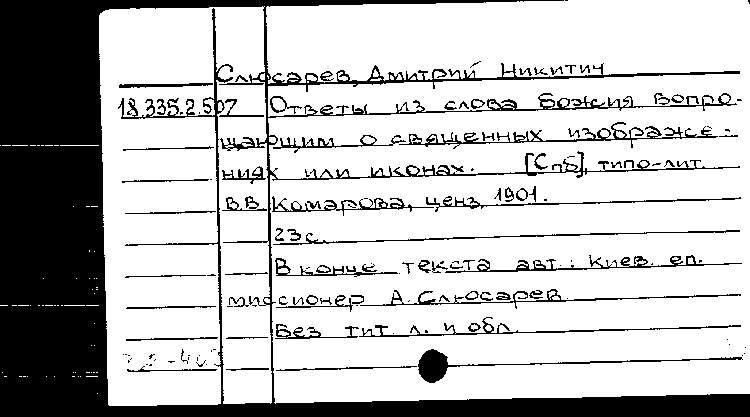 Слюсарев, Дмитрий Никитич
18.335.2.507 Ответы из слова божия вопро-
щающим о священных изображе-
ниях или иконах. [Спб], типо-лит.
В.В. Комарова, ценз. 1901.
23с.
В конце текста авт.: Киев. еп.
миссионер Д. Слюсарев
Без тит. л. и обл.